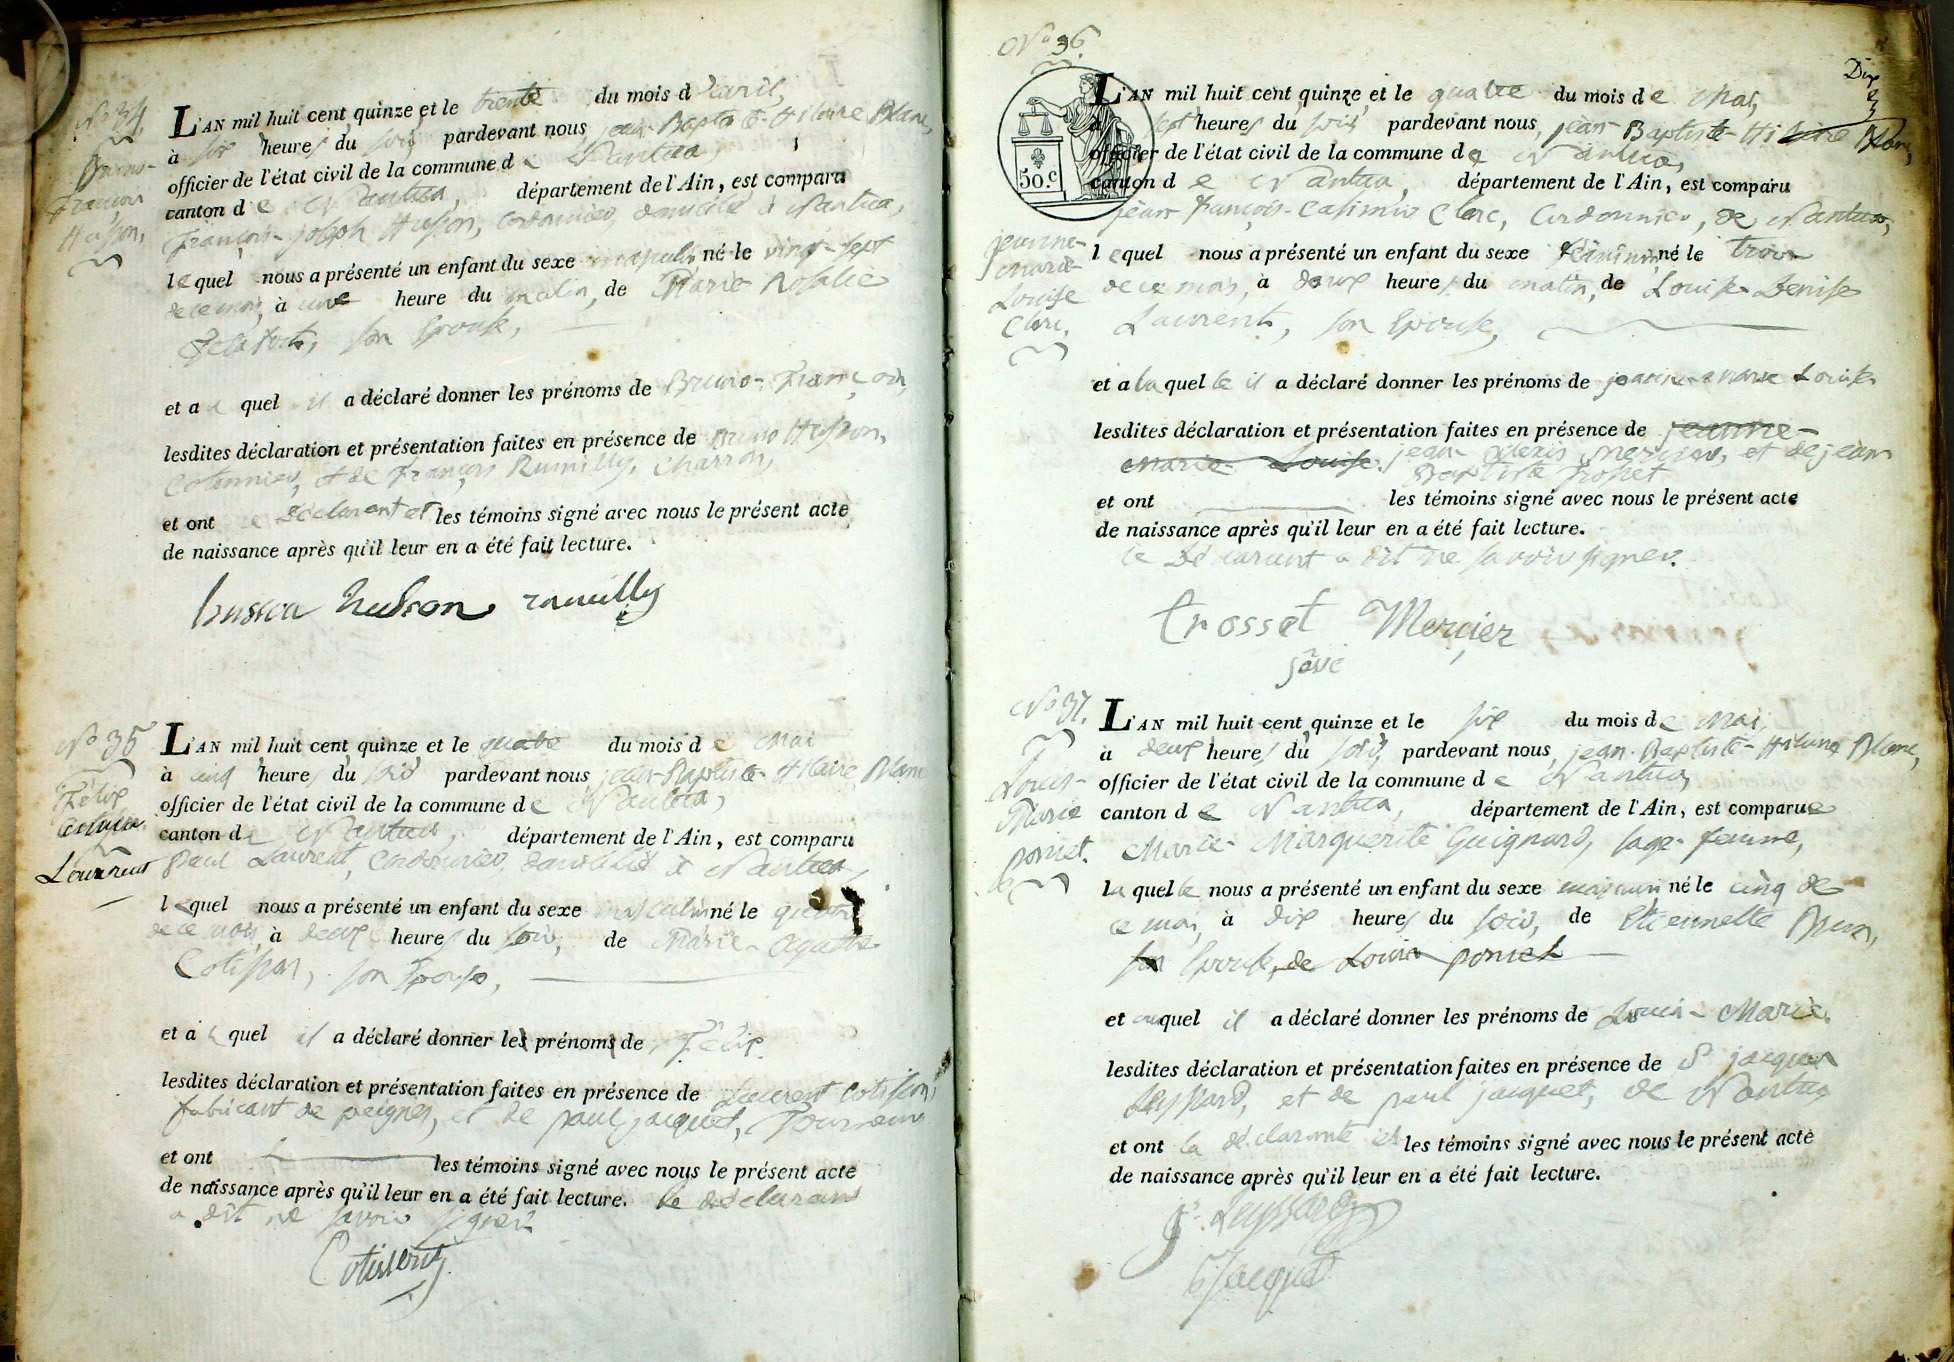 N° 34
Bruno-
François
Husson,
L'AN mil huit cent quinze et le trente du mois d'avril,
à six heures du soir pardevant nous jean-Baptiste-Hilaire Blanc,
officier de l'état civil de la commune de Nantua,
canton de Nantua, département de l'Ain, est comparu
françois-joseph Husson, Cordonnier, domicilié à Nantua,
lequel nous a présenté un enfant du sexe masculin né le vingt-sept
de ce mois, à une heure du matin, de Marie Rosalie
son Epouse,
et a quel il a déclaré donner les prénoms de Bruno-François,
lesdites déclaration et présentation faites en présence de Bruno Husson,
Cotonnier, et de françois Rumilly, Charron,
et ont le Déclarant et les témoins signé avec nous le présent acte
de naissance après qu'il leur en a été fait lecture.
husson husson rumilly
N° 35
Félix
Laurent
L'AN mil huit cent quinze et le quatre du mois de Mai
à cinq heures du soir pardevant nous jean-Baptiste-Hilaire Blanc
officier de l'état civil de la commune de Nantua,
canton de Nantua, département de l'Ain, est comparu
Paul Laurent, Cordonnier domicilié à Nantua,
lequel nous a présenté un enfant du sexe masculin né le quatre
de ce mois, à deux heures du soir, de Marie-Agathe
Cotisson, son Epouse,
et a quel il a déclaré donner les prénoms de Félix.
lesdites déclaration et présentation faites en présence de Laurent Cotisson,
fabricant de peignes, et de paul jacquet, Tourneur
et ont les témoins signé avec nous le présent acte
de naissance après qu'il leur en a été fait lecture. le déclarant
a dit ne savoir signer
Cotisson
N° 36.
Dix
50.c
jeanne-
marie-
Louise
Clerc.
L'AN mil huit cent quinze et le quatre du mois de Mai,
à sept heures du soir pardevant nous, jean-Baptiste-Hilaire Blanc,
officier de l'état civil de la commune de Nantua,
canton de Nantua, département de l'Ain, est comparu
jean françois-Casimir Clerc, Cordonnier, de Nantua,
lequel nous a présenté un enfant du sexe féminin né le trois
de ce mois, à deux heures du matin, de Louise Denise
Laurent, son Epouse,
et a laquelle il a déclaré donner les prénoms de jeanne-marie Louise
lesdites déclaration et présentation faites en présence de jeanne-
marie Louise. jean Alexis mercier, et de jean
Baptiste Trosset
et ont les témoins signé avec nous le présent acte
de naissance après qu'il leur en a été fait lecture.
le Déclarant a dit ne savoir signer.
Trosset Mercier
N° 37.
Louis-
Marie
poncet.
L'AN mil huit cent quinze et le six du mois de Mai
à deux heures du soir, pardevant nous, jean-Baptiste-Hilaire Blanc,
officier de l'état civil de la commune de Nantua,
canton de Nantua, département de l'Ain, est comparue
Marie-Marguerite Guignard, sage-femme,
laquelle nous a présenté un enfant du sexe masculin né le cinq de
ce mois, à dix heures du soir, de Etiennette Brun,
son Epouse, de Louis poncet
et auquel il a déclaré donner les prénoms de Louis-Marie.
lesdites déclaration et présentation faites en présence de jacques
Leyssard, et de paul jacquet, de Nantua
et ont la déclarante et les témoins signé avec nous le présent acte
de naissance après qu'il leur en a été fait lecture.
Leyssard
Jacquet